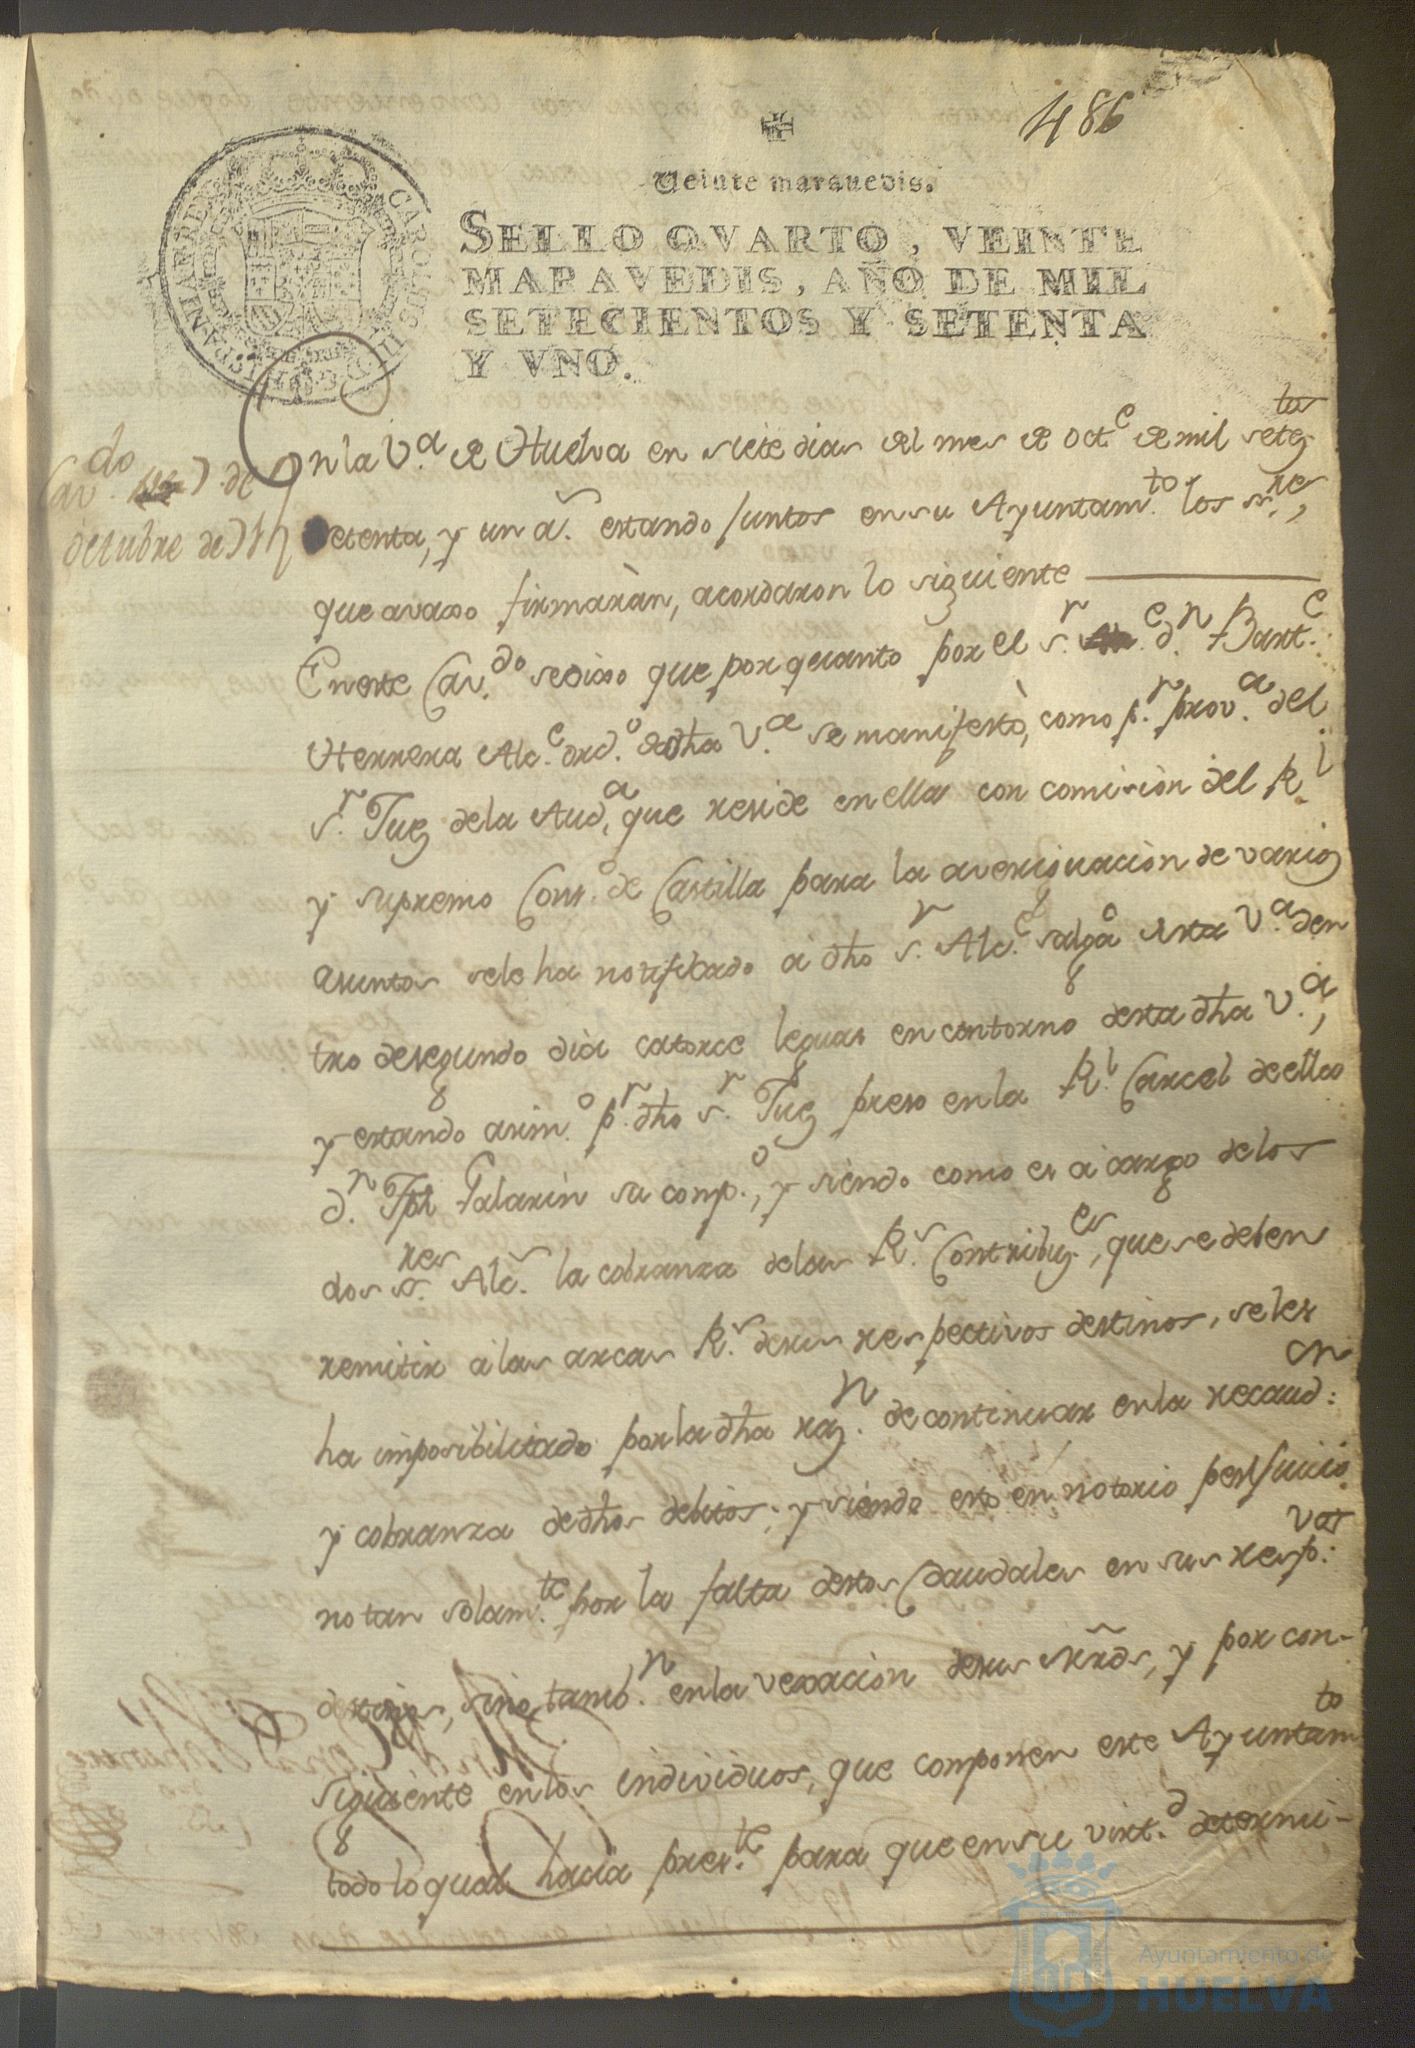 486
Veinte marauedis.
SELLO QVARTO, VEINTE
MARAVEDIS, AÑO DE MIL
SETECIENTOS Y SETENTA
Y VNO.
CAROLUS III D G HISPANIAR REX
Cav.do 7 de
octubre de 71
En la V.a de Huelva en siete dias del mes de Oct.e de mil setez.tos
setenta, y un a.s estando juntos en su Ayuntam.to los ss.res,
que avaxo firmaràn, acordaron lo siguiente
En este Cav.do se dixo que por quanto por el s.r d.n Bart.e
Herrera Alc.e ord.o de dha V.a se manifestò, como p.r prov.a del
s.r Juez de la Aud.a, que reside en ella con comisiòn del R.l
y supremo Cons.o de Castilla para la averiguaciòn de varios
asuntos se le ha notificado a dho s.r Alc.e salga desta V.a den
tro de segundo dia catorce leguas en contorno desta dha V.a,
y estando asim.o p.r dho s.r Juez preso en la R.l Carcel de ella
d.n Jph Galarin su comp.o, y siendo como es a cargo de los
dos ss.res Alc.s la cobranza de las R.s Contribuz.es, que se deben
remitir a las arcas R.s de sus respectivos destinos, se les
ha imposibilitado por la dha raz.n de continuar en la recaud:on
y cobranza de dhos debitos; y siendo esto en notorio perjuicio
no tan solam.te por la falta destos Caudales en sus resp:vos
destinos, sino tamb.n en la vexaciòn de sus , y por con-
siguiente en los individuos, que componen este Ayuntam.to
todo lo qual hacia pres.te para que en su virt.d determi-
Ayuntamiento de
HUELVA